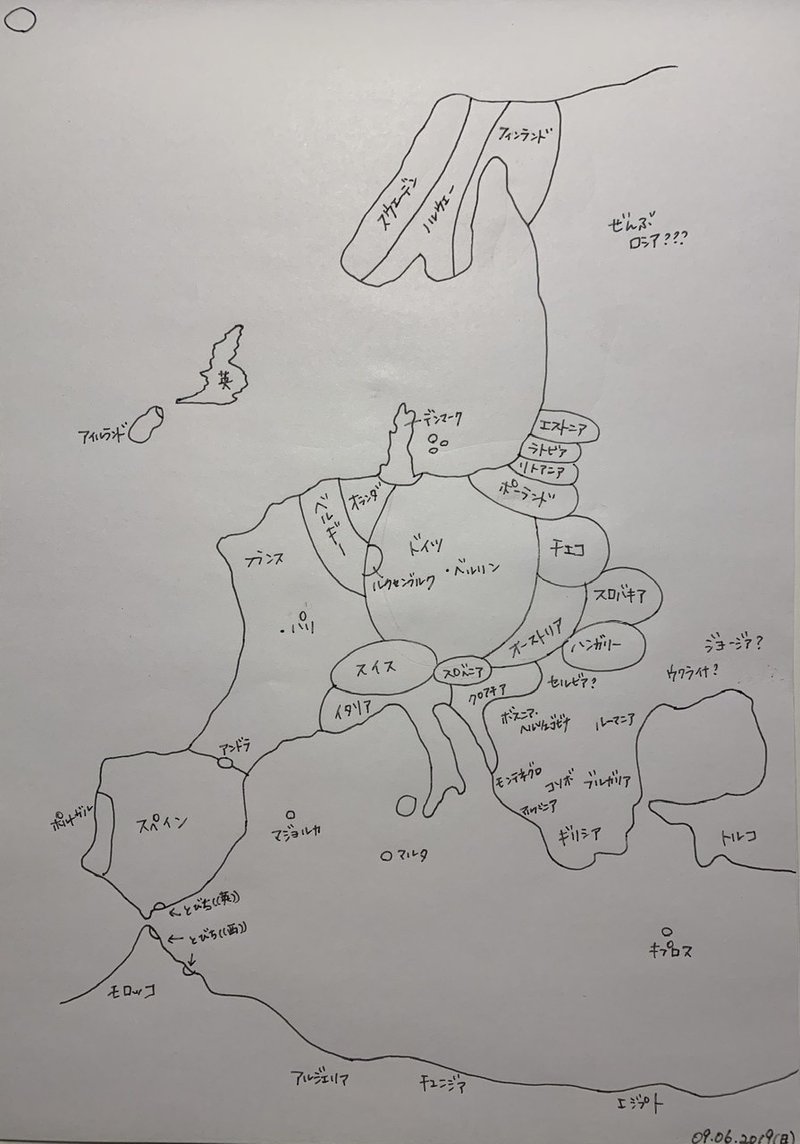 フィンランド
スウェーデン
ノルウェー
ぜんぶ
ロシア???
英
アイルランド
デンマーク
エストニア
ラトビア
リトアニア
ポーランド
オランダ
ベルギー
フランス
ドイツ
・ベルリン
ルクセンブルク
チェコ
スロバキア
・パリ
オーストリア
ハンガリー
ジョージア?
ウクライナ?
スイス
スロベニア
クロアチア
セルビア?
イタリア
ボスニア・
ヘルツェゴビナ
ルーマニア
アンドラ
モンテネグロ
コソボ
ブルガリア
アルバニア
ポルトガル
スペイン
マジョルカ
マルタ
ギリシア
トルコ
←とびち((英))
←とびち((西))
↓
キプロス
モロッコ
アルジェリア
チュニジア
エジプト
09.06.2019(日)